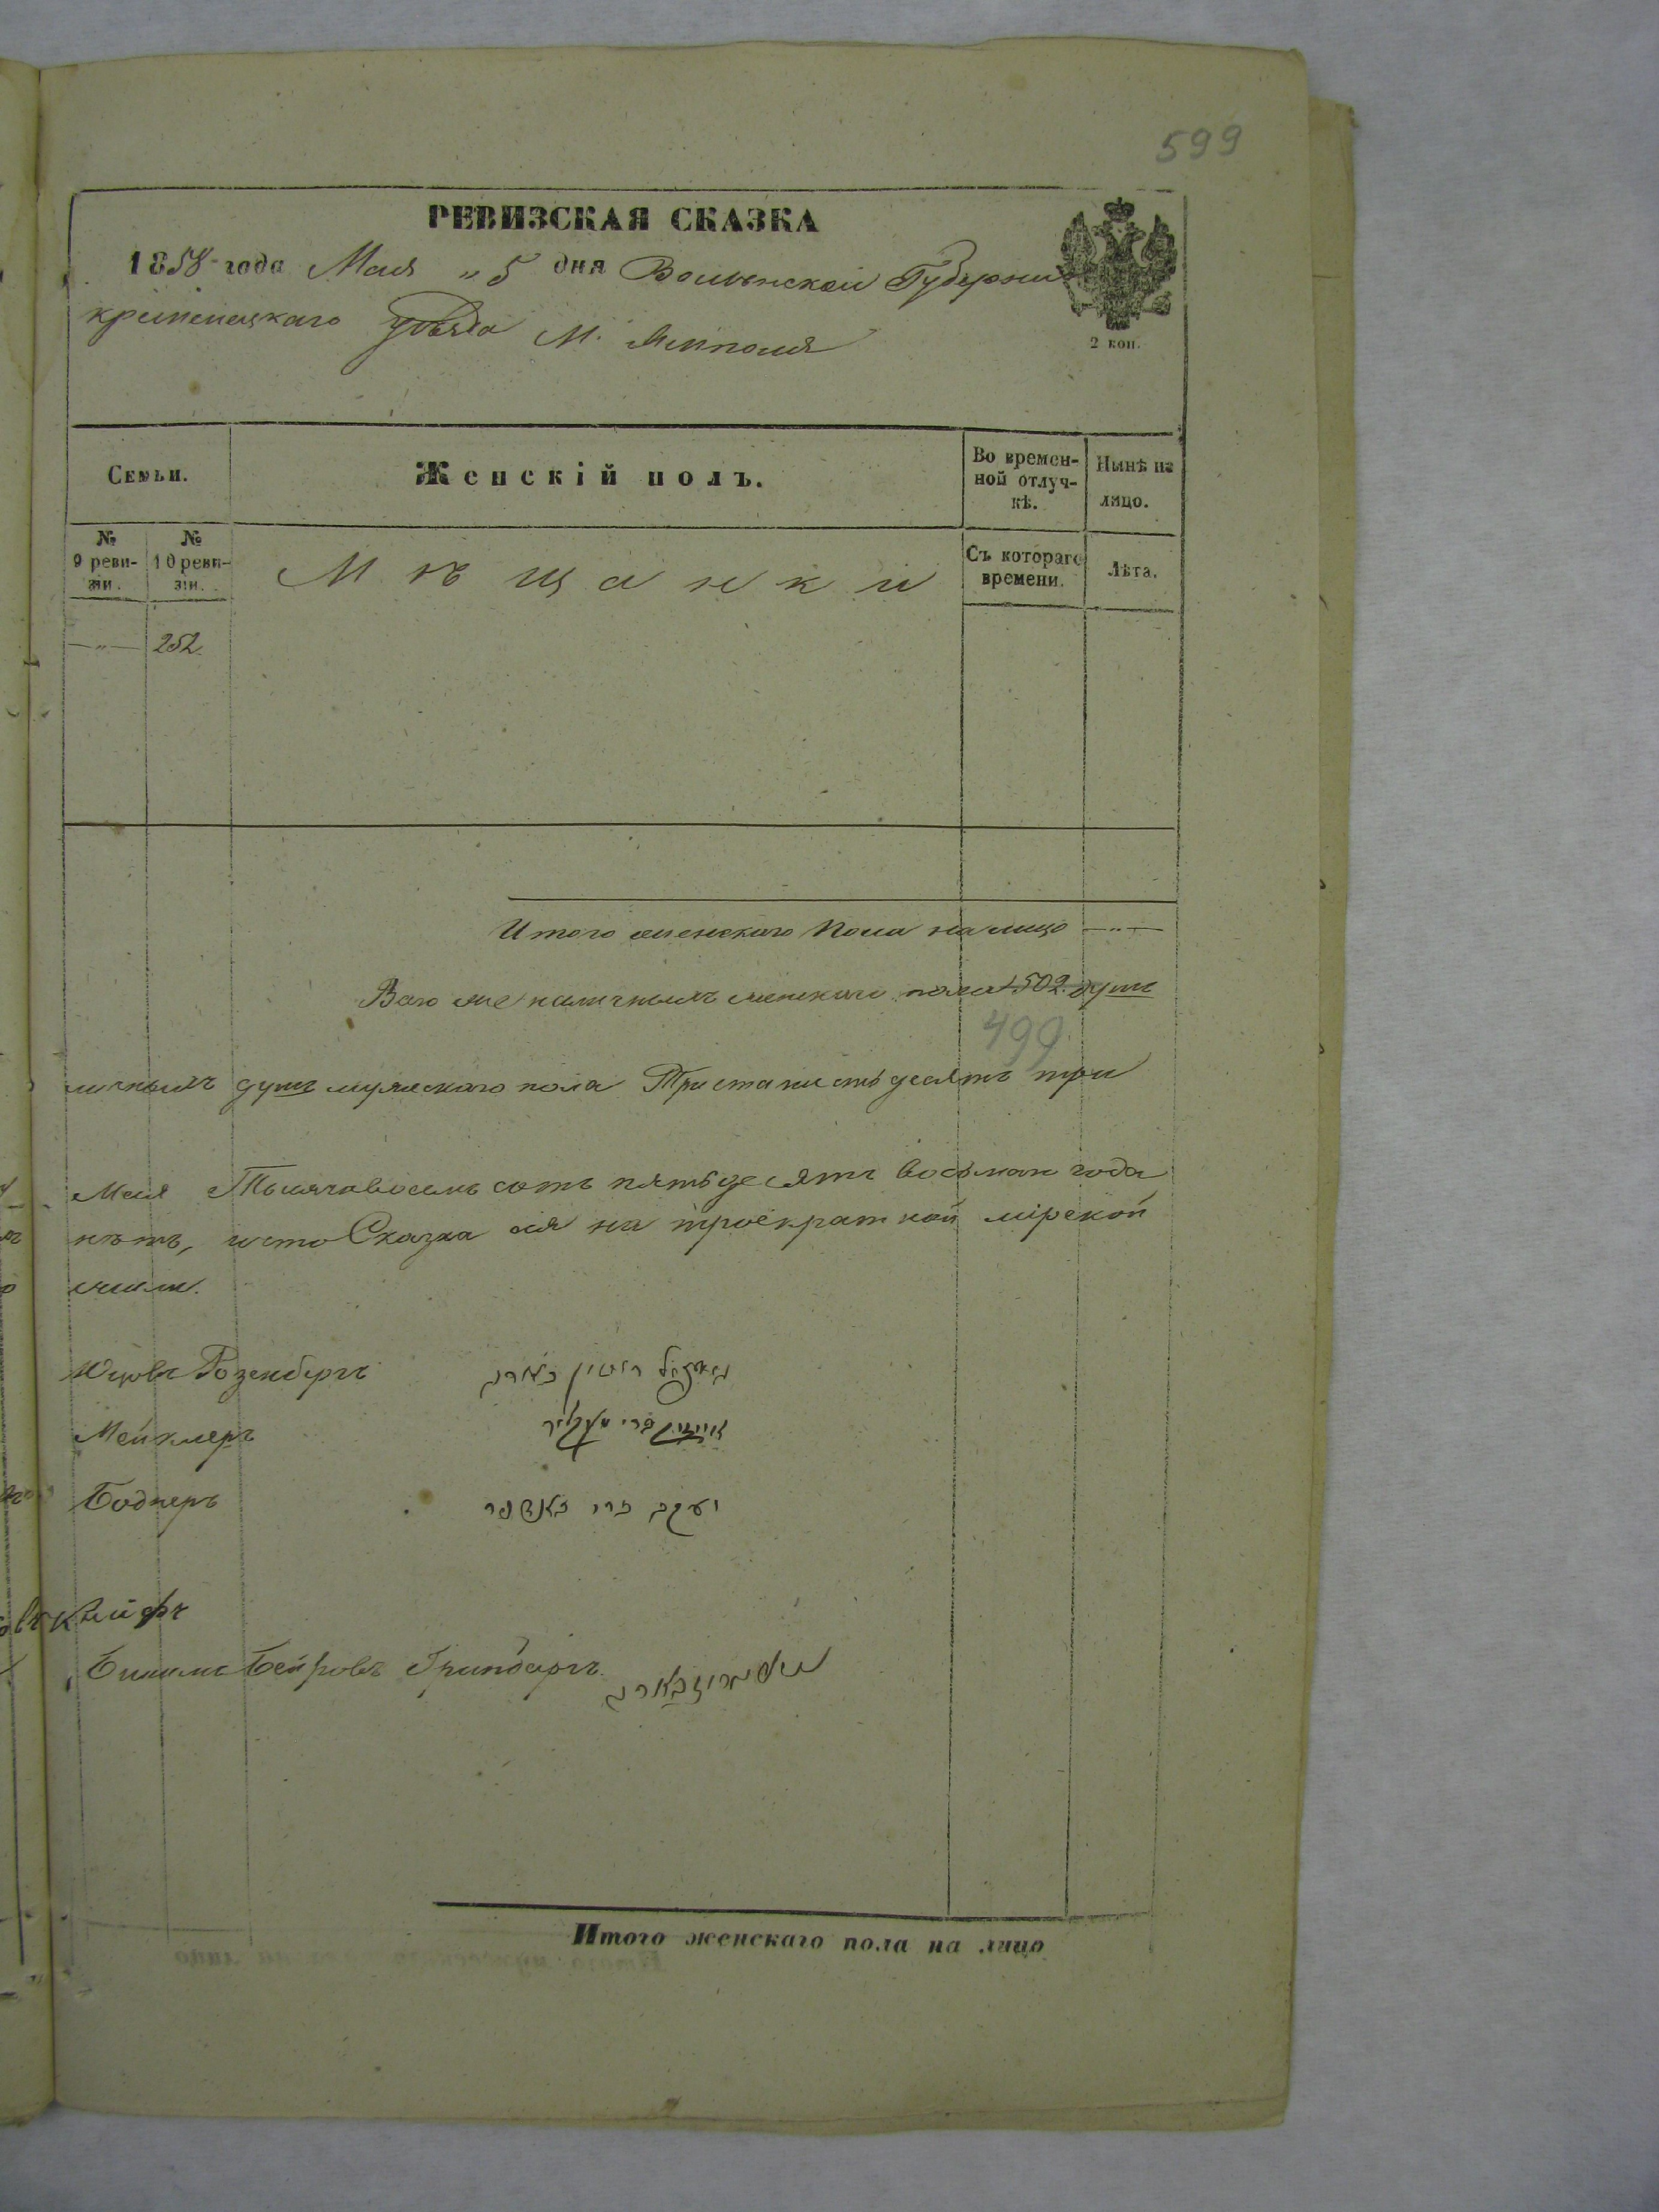 599
РЕВИЗСКАЯ СКАЗКА
1858 года Мая "5 дня Волынской Губернии
Кременецкаго уѣзда М. Ямполя
2 коп.
Семьи.
Женскій полъ.
Во времен-
ной отлуч-
кѣ.
Нынѣ на
лицо.
№
9 реви-
зіи.
№
10 реви-
зіи.
Мѣщанки
Съ котораго
времени.
Лѣта.
—"— 252.
Итого женскаго пола на лицо —"—
наличныхъ женскаго пола 502 душъ
499.
личныхъ душъ мужескаго пола Триста шестьдесятъ три
Мая Тысяча восемь сотъ пятьдесятъ восьмаго года
нѣтъ, и что Сказка сія на троекратной мірской
Розенбергъ
Мейклеръ
Боднеръ
יעקב בודנער
Гринбергъ
Итого женскаго пола на лицо